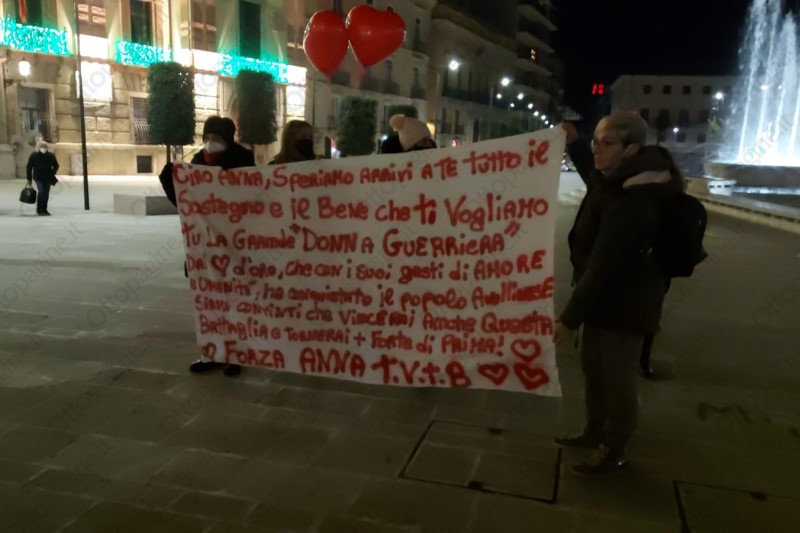 Ciao Anna, Speriamo arrivi a te tutto il
Sostegno e il Bene che ti Vogliamo
Tu la Grande "Donna Guerriera"
Dal ♥ d'oro, che con i suoi gesti di AMORE
e Umanità", ha conquistato il popolo Avellinese
Siamo convinti che Vincerai Anche Questa
Battaglia e Tornerai + Forte di Prima!
Forza ANNA T.V.T.B
Ottopagine.it